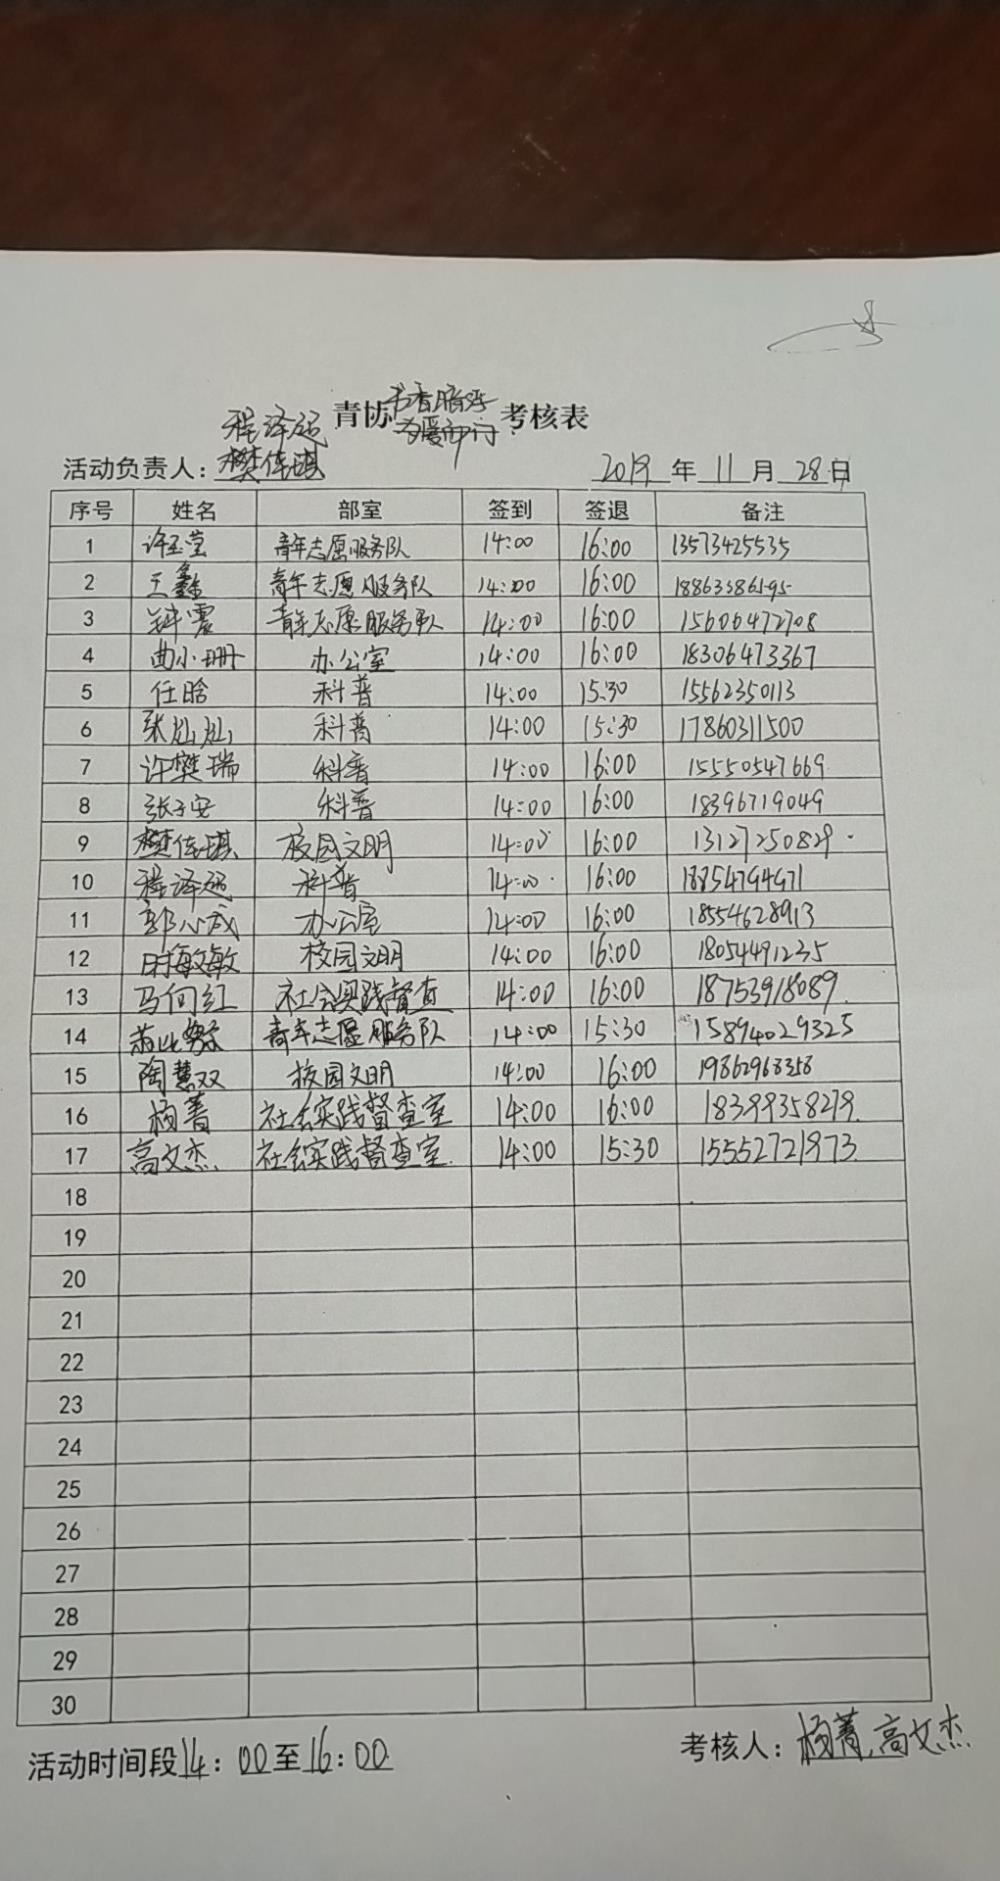 青协 考核表
程泽远
活动负责人：樊佳琪 2019 年 11 月 28 日
序号 姓名 部室 签到 签退 备注
1 许玉莹 青年志愿服务队 14:00 16:00 13573425535
2 王鑫 青年志愿服务队 14:00 16:00 18863386195
3 震 青年志愿服务队 14:00 16:00 15606472708
4 曲小珊 办公室 14:00 16:00 18306473367
5 任晗 科普 14:00 15:30 15562350113
6 张灿灿 科普 14:00 15:30 17860311500
7 许樊瑞 科普 14:00 16:00 15550547669
8 张子安 科普 14:00 16:00 18396719049
9 樊佳琪 校园文明 14:00 16:00 13127250829
10 程泽远 科普 14:00 16:00 18854794971
11 郭心成 办公室 14:00 16:00 18554628913
12 时敏敏 校园文明 14:00 16:00 18054491235
13 马向红 社会实践督查 14:00 16:00 18753918089
14 青年志愿服务队 14:00 15:30 15894029325
15 陶慧双 校园文明 14:00 16:00 19862968358
16 杨菁 社会实践督查室 14:00 16:00 18399358279
17 高文杰 社会实践督查室 14:00 15:30 15552721973
18
19
20
21
22
23
24
25
26
27
28
29
30
活动时间段14：00至16：00 考核人：杨菁、高文杰